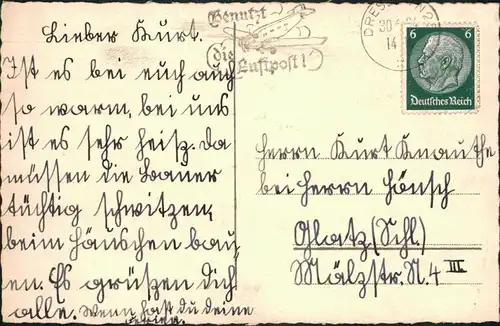 Lieber Kurt.
Ist es bei euch auch
so warm, bei uns
ist es sehr heiß. Da
müssen die Bauer
tüchtig schwitzen,
beim Häuschen bau-
en. Es grüßen Dich
alle. Wenn hast du deine
Ferien.
Benutzt
die
Luftpost!
DRESDEN
30
14
6 6
Deutsches Reich
Herrn Kurt Knauthe
bei Herrn Hönsch
Glatz (Schl.)
Mälzstr. N. 4 III